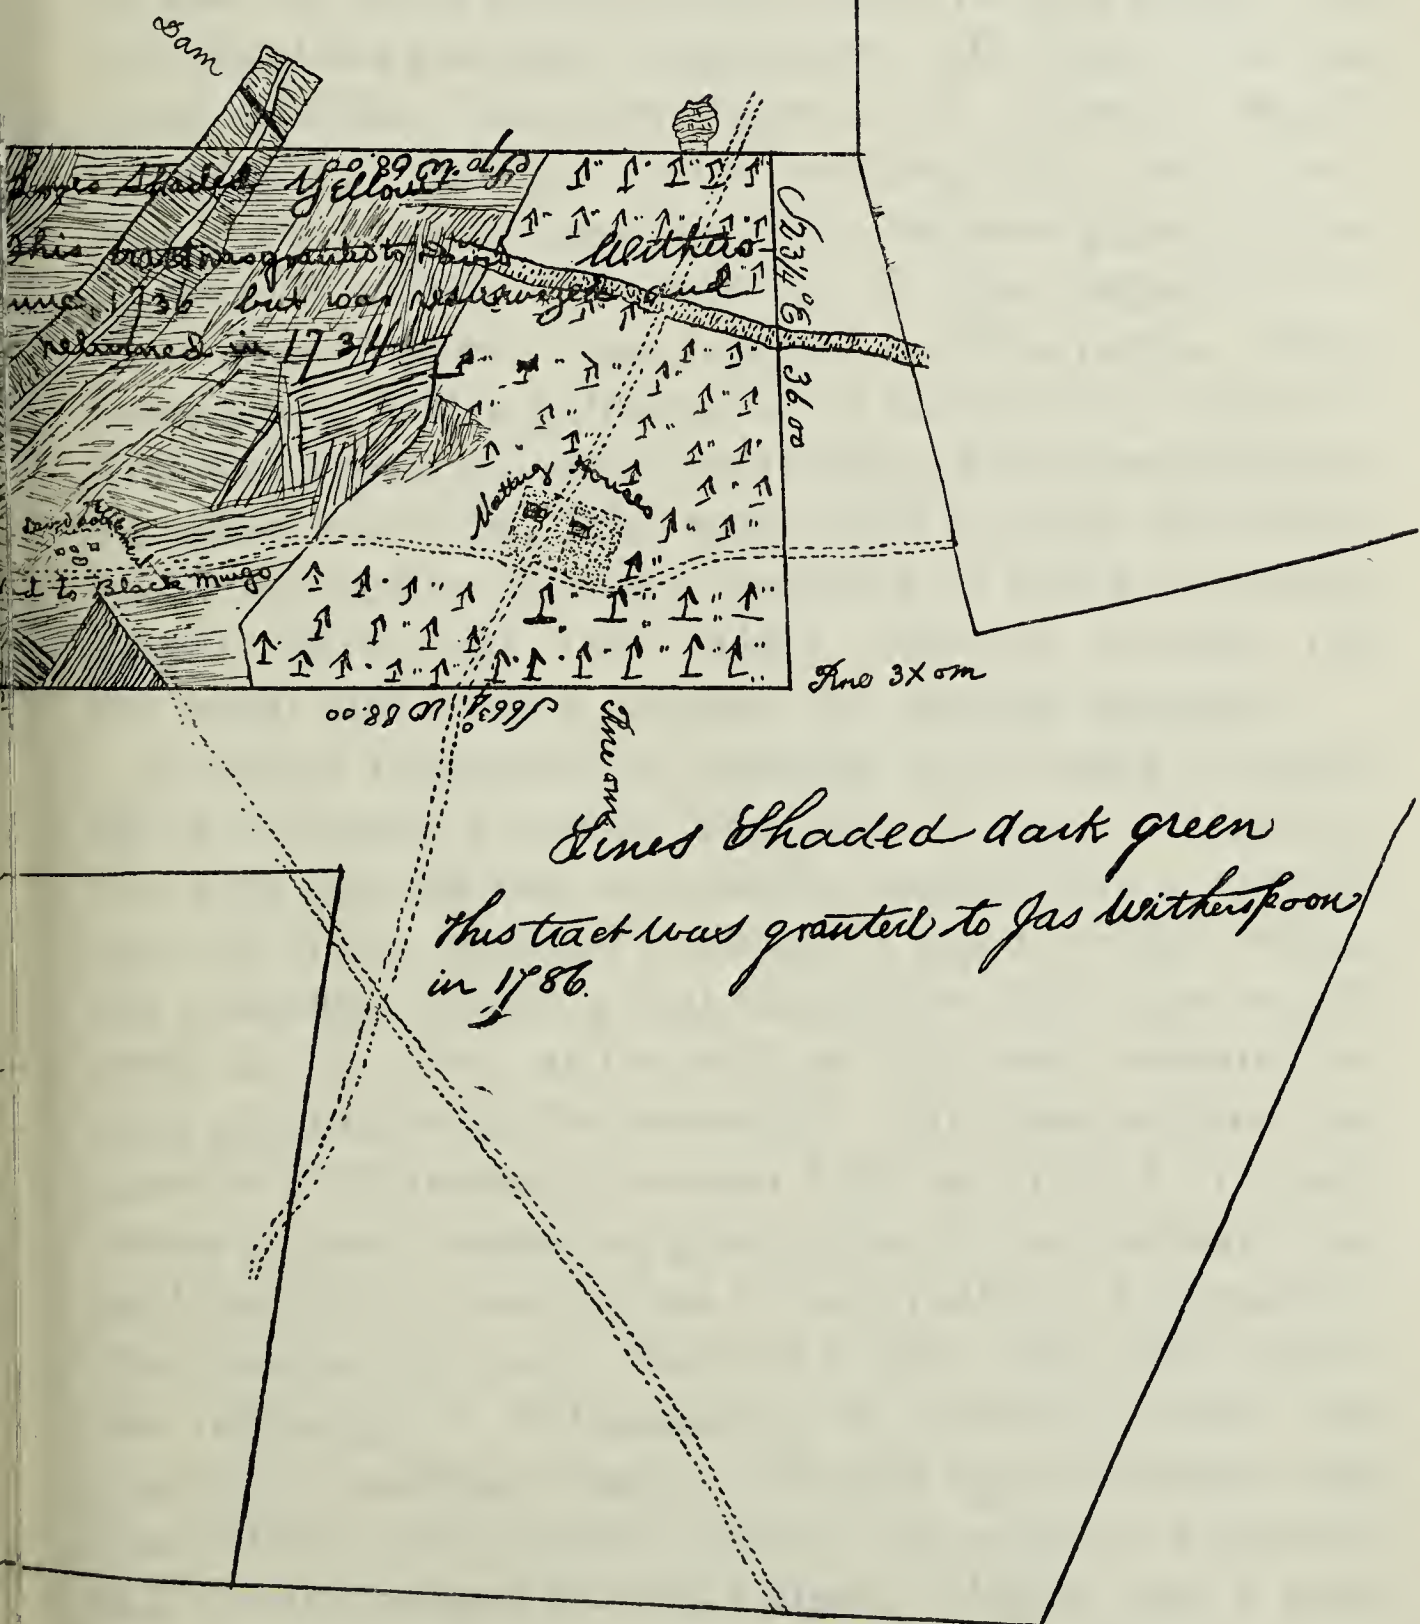 Dam
Lines Shaded Yellow
This tract was granted to David Withers
1736 but was resurveyed and
returned in 1734
N 23¼°E 36.00
Meeting Houses
Settlement
to Black Mingo
Pine 3X om
S66¾°W 88.00
Pine om
Lines Shaded dark green
This tract was granted to Jas Witherspoon
in 1786.